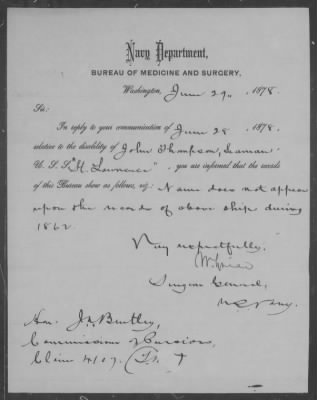 Navy Department,
BUREAU OF MEDICINE AND SURGERY,
Washington, June 29, 1878.
Sir:
In reply to your communication of June 28 1878.
relative to the disability of John Thompson, Seaman
U. S. S. "H. Lawrence", you are informed that the records
of this Bureau show as follows, viz: Name does not appear
upon the records of above ship during
1862.
Very respectfully,
Surgeon General,
U S Navy.
Hon. J. A. Bentley,
Commissioner of Pensions,
Claim 4107.